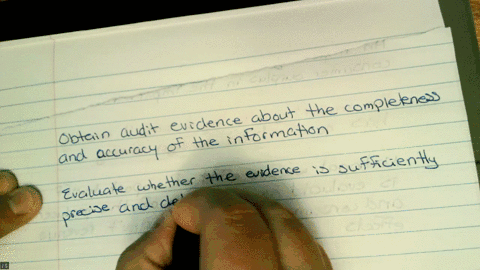 Obtain audit evidence about the completeness
and accuracy of the information
Evaluate whether the evidence is sufficiently
precise and